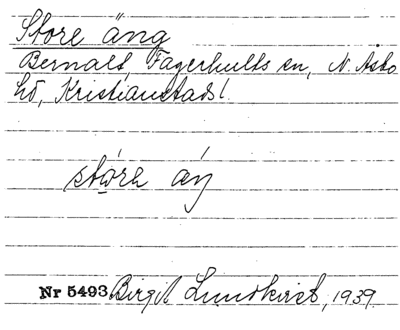 Store äng
Bernalt, Fagerhults sn, N. Åsbo
hd, Kristianstads l.
Nr 5493 Birgit Lundkvist, 1939.